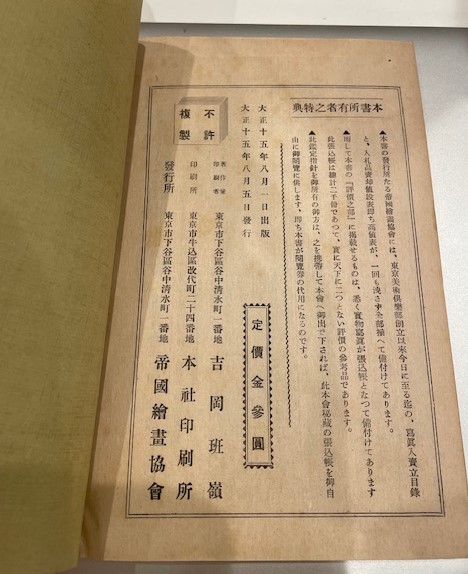 本書所有者之特典
▲本書の發行所たる帝國繪畫協會には、東京美術倶樂部創立以來今日に至る迄の、寫眞入賣立目錄
と、入札品賣却値段表即ち高値表が、一回も洩さず全部揃へて備付けてあります。
▲而して本書の『評價之部』に掲載せるものは、悉く實物寫眞が張込帳となつて備付けてあります
此張込帳は總計二千冊であつて、實に天下に二つとない評價の參考品であります。
▲此鑑定指針を御所有の御方は、之を携帶して本會へ御出で下されば、此本會秘藏の張込帳を御自
由に御閲覽に供します、即ち本書が閲覽券の代用になるのです。
定價金參圓
大正十五年八月一日出版
大正十五年八月五日發行
不許
複製
著作者
印刷者 東京市下谷區谷中清水町一番地 吉岡班嶺
印刷所 東京市牛込區改代町二十四番地 本社印刷所
發行所 東京市下谷區谷中清水町一番地 帝國繪畫協會